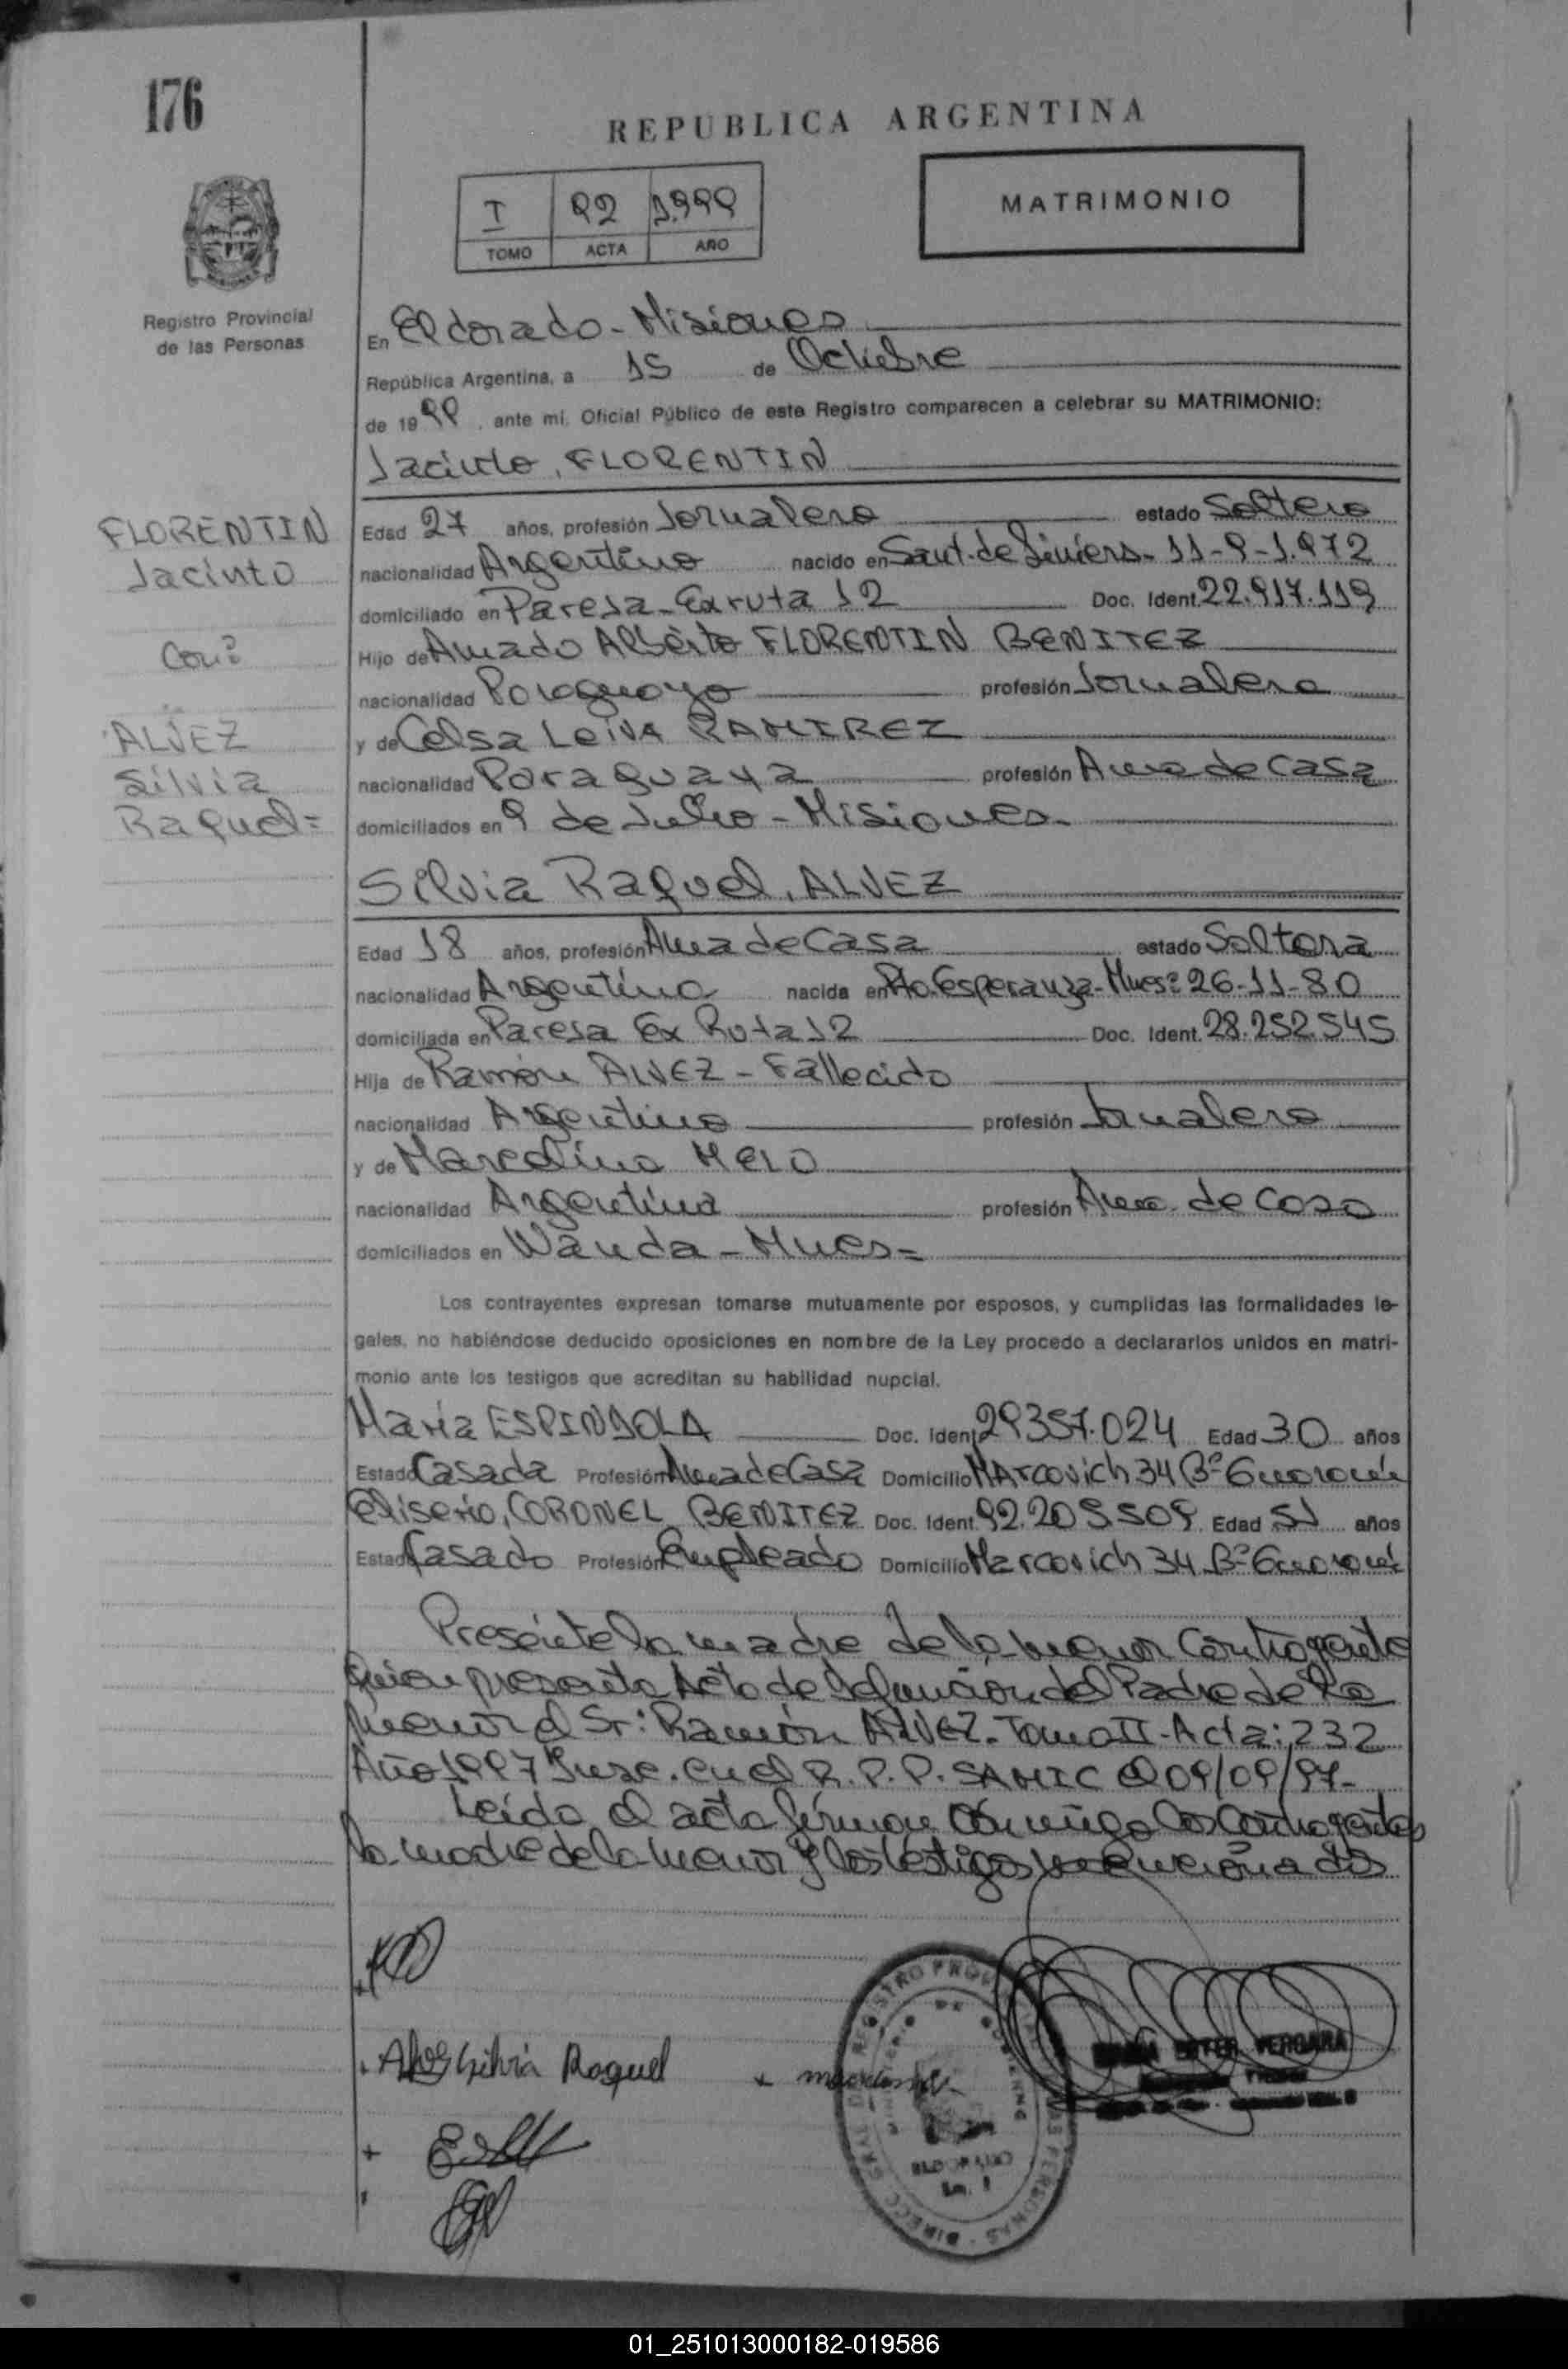 176
REPUBLICA ARGENTINA
I 92 1.999
TOMO ACTA AÑO
MATRIMONIO
Registro Provincial
de las Personas
En Eldorado - Misiones
República Argentina, a 15 de Octubre
de 1999, ante mi, Oficial Público de este Registro comparecen a celebrar su MATRIMONIO:
Jacinto, FLORENTIN
FLORENTIN
Jacinto
Con:
ALVEZ
Silvia
Raquel=
Edad 27 años, profesión Jornalero estado Soltero
nacionalidad Argentino nacido en Sant. de Liniers - 11-9-1.972
domiciliado en Paresa - Ex ruta 12 Doc. Ident. 22.917.119
Hijo de Amado Alberto FLORENTIN BENITEZ
nacionalidad Paraguayo profesión Jornalero
y de Celsa Leiva RAMIREZ
nacionalidad Paraguaya profesión Ama de Casa
domiciliados en 9 de Julio - Misiones.
Silvia Raquel, ALVEZ
Edad 18 años, profesión Ama de Casa estado Soltera
nacionalidad Argentina nacida en Pto. Esperanza - Mnes: 26-11-80
domiciliada en Paresa Ex Ruta 12 Doc. Ident. 28.252.545
Hija de Ramón ALVEZ - Fallecido
nacionalidad Argentino profesión Jornalero
y de Marcelina MELO
nacionalidad Argentina profesión Ama de Casa
domiciliados en Wanda - Mnes=
Los contrayentes expresan tomarse mutuamente por esposos, y cumplidas las formalidades le-
gales, no habiéndose deducido oposiciones en nombre de la Ley procedo a declararlos unidos en matri-
monio ante los testigos que acreditan su habilidad nupcial.
María ESPINDOLA Doc. Ident. 29357.024 Edad 30 años
Estado Casada Profesión Ama de Casa Domicilio Marcovich 34 Bº Guaraní
Eliserio, CORONEL BENITEZ Doc. Ident. 92.205509 Edad 51 años
Estado Casado Profesión Empleado Domicilio Marcovich 34 Bº Guaraní
Presente la madre de la menor Contrayente
quien presenta Acta de Defunción del Padre de la
menor el Sr: Ramón ALVEZ - Tomo II - Acta: 232
Año 1997 Insc. en el R.P.P. SAMIC el 09/09/97-
Leida el acta firman conmigo los Contrayentes
la madre de la menor y los testigos mencionados
Silvia Raquel
REGISTRO PROVINCIAL DE LAS PERSONAS
ELDORADO
ESTER VERGARA
01_251013000182-019586